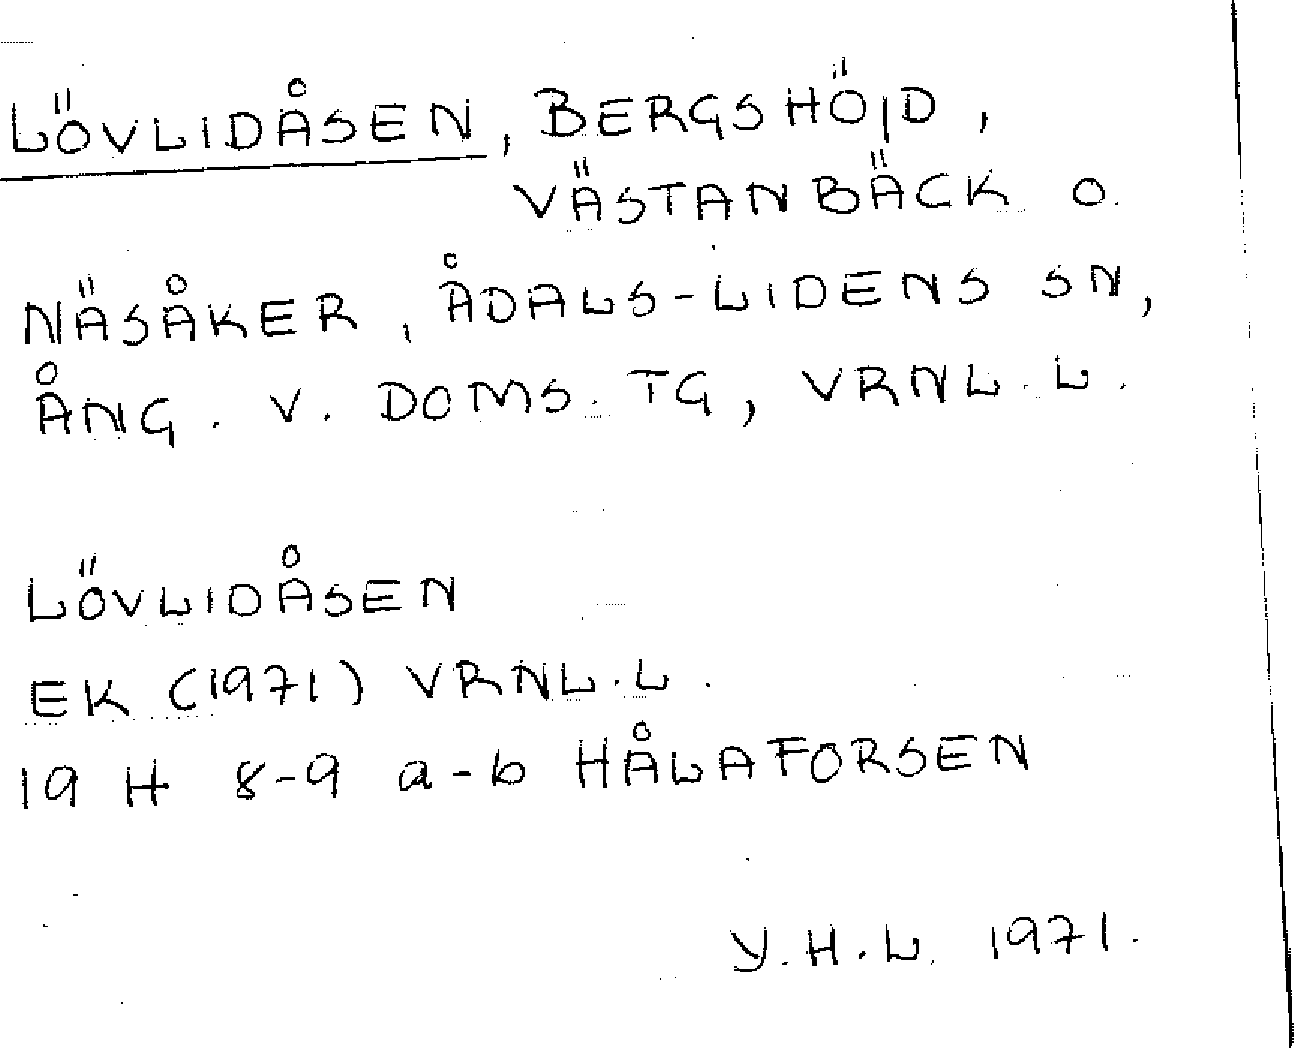 LÖVLIDÅSEN, BERGSHÖJD,
VÄSTANBÄCK O.
NÄSÅKER, ÅDALS-LIDENS SN,
ÅNG. V. DOMS. TG, VRNL. L.
LÖVLIDÅSEN
EK (1971) VRNL. L.
19 H 8-9 a-b HÅLAFORSEN
Y.H.L. 1971.